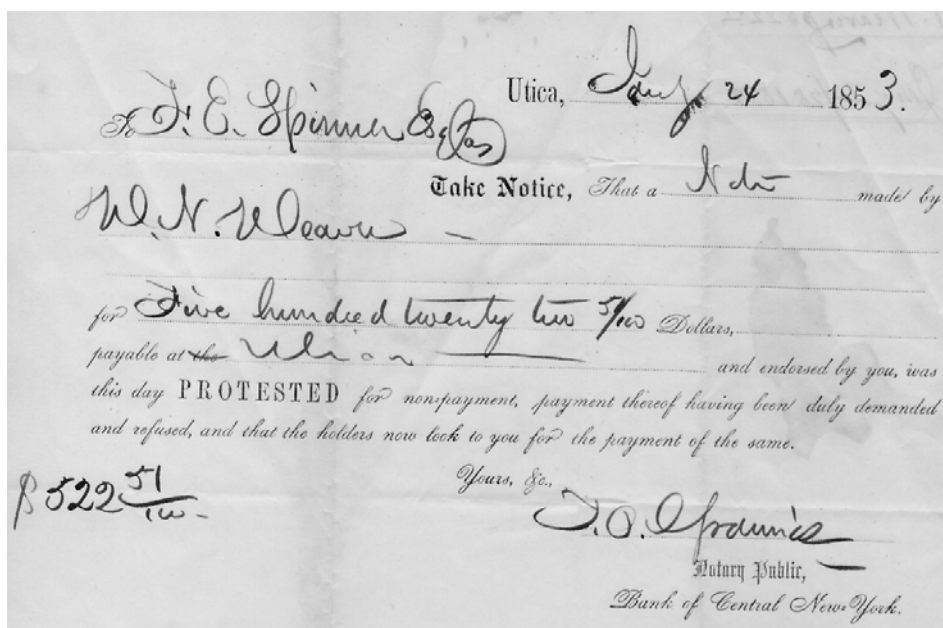 Utica, Jany 24 1853.
To F. E. Spinner Esq Cas
Take Notice, That a Note made by
W. N. Weaver
for Five hundred twenty two 51/100 Dollars,
payable at the Utica and endorsed by you, was
this day PROTESTED for non-payment, payment thereof having been duly demanded
and refused, and that the holders now look to you for the payment of the same.
Yours, &c.,
$522 51/100
T. O.
Notary Public,
Bank of Central New-York.